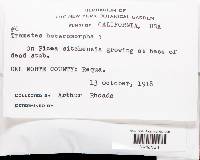 HERBARIUM OF
THE NEW YORK BOTANICAL GARDEN
FUNGI OF CALIFORNIA, USA
Trametes heteromorpha
On Picea sitchensis growing at base of
dead stub.
DEL NORTE COUNTY: Requa.
13 October, 1918
COLLECTED BY Arthur Rhoads
DETERMINED BY